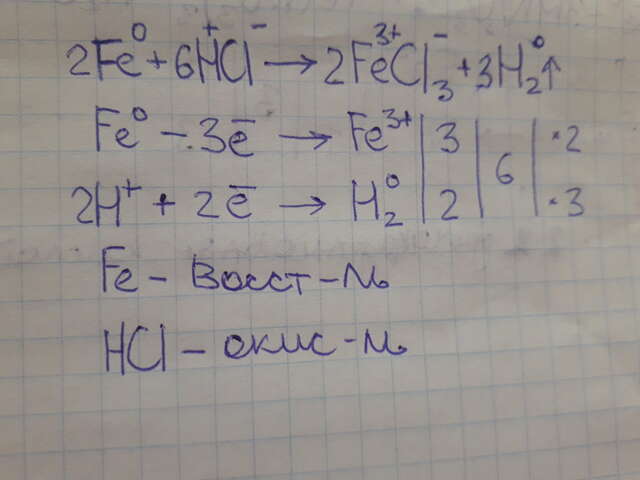 2Fe⁰ + 6H⁺Cl⁻ → 2Fe³⁺Cl₃⁻ + 3H₂⁰↑
Fe⁰ - 3ē → Fe³⁺ | 3 | 6 | ·2
2H⁺ + 2ē → H₂⁰ | 2 | | ·3
Fe - восст-ль
HCl - окис-ль